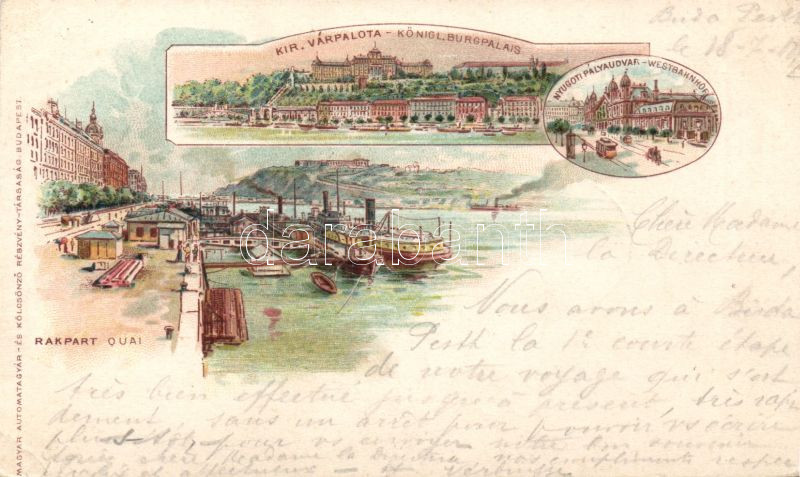 KIR. VÁRPALOTA - KÖNIGL. BURGPALAIS
NYUGOTI PÁLYAUDVAR - WESTBAHNHOF
RAKPART QUAI
MAGYAR AUTOMATAGYÁR- ÉS KÖLCSÖNZŐ RÉSZVÉNY-TÁRSASÁG BUDAPEST.
darabanth
Buda Pesth
le 18
Chère Madame
la Directrice,
Nous avons à Buda
Pesth la 1e courte étape
de notre voyage qui s'est
très bien effectué jusqu'à présent très rapi
dement sans un arrêt pour pouvoir vs écrire
plus tôt, pour vs envoyer notre bon souvenir
chère Madame la Directrice vos compliments respec
et